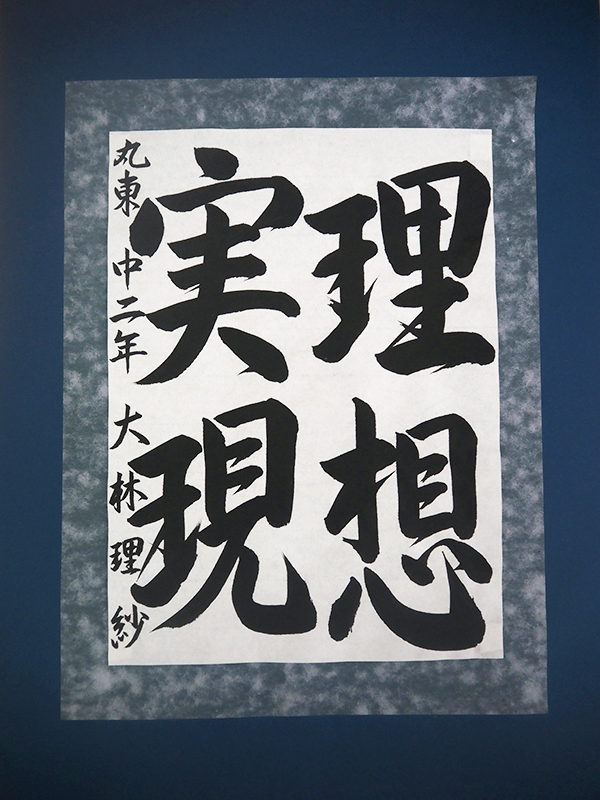 理想
実現
丸東 中二年 大林理紗